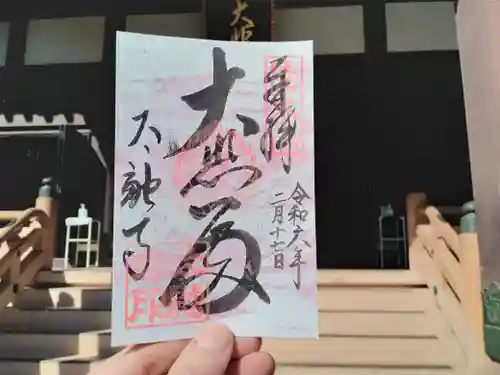 大悲
奉拝
令和六年
二月十七日
大悲殿
太融寺